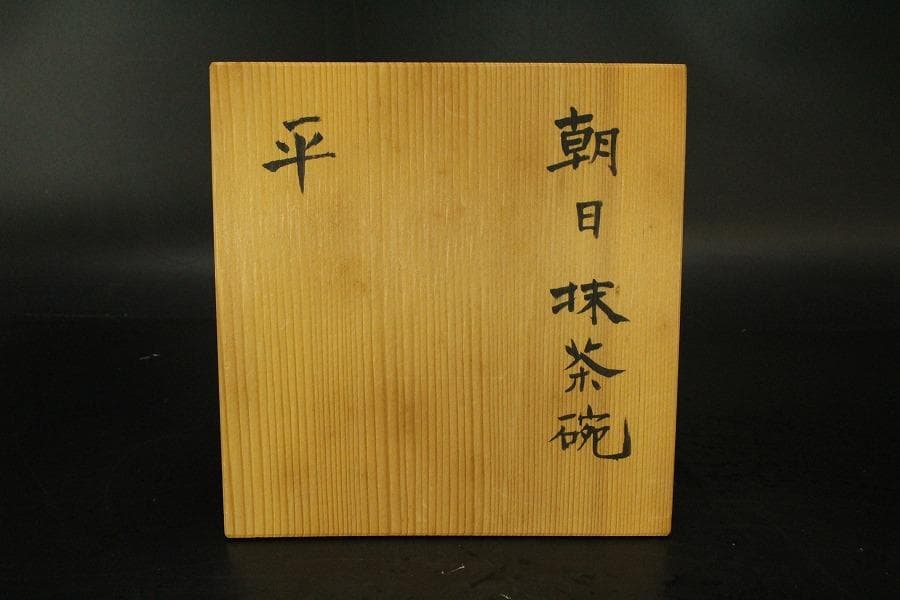 朝日抹茶碗
平